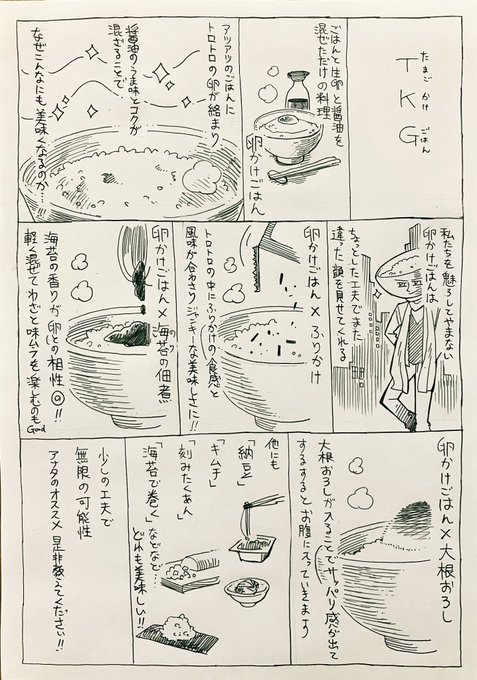 たまご かけ ごはん
TKG
ごはんと生卵と醤油を
混ぜただけの料理
卵かけごはん
アツアツのごはんに
トロトロの卵が絡まり
醤油のうま味とコクが
混ざることで
なぜこんなにも美味くなるのか…!!
私たちを魅了してやまない
卵かけごはんは
ちょっとした工夫でまた
違った顔を見せてくれる
卵かけごはん×ふりかけ
トロトロの中にふりかけの食感と
風味が合わさりジャンキーな美味しさに!!
卵かけごはん×海苔の佃煮
のり
海苔の香りが卵との相性◎!!
軽く混ぜてわざと味ムラを楽しむのもGood
卵かけごはん×大根おろし
大根おろしが入ることでサッパリ感が出て
するするとお腹に入っていきます
他にも
「納豆」
「キムチ」
「刻みたくあん」
「海苔で巻く」などなど…
どれも美味しい!!
少しの工夫で
無限の可能性
アナタのオススメ是非教えてください!!